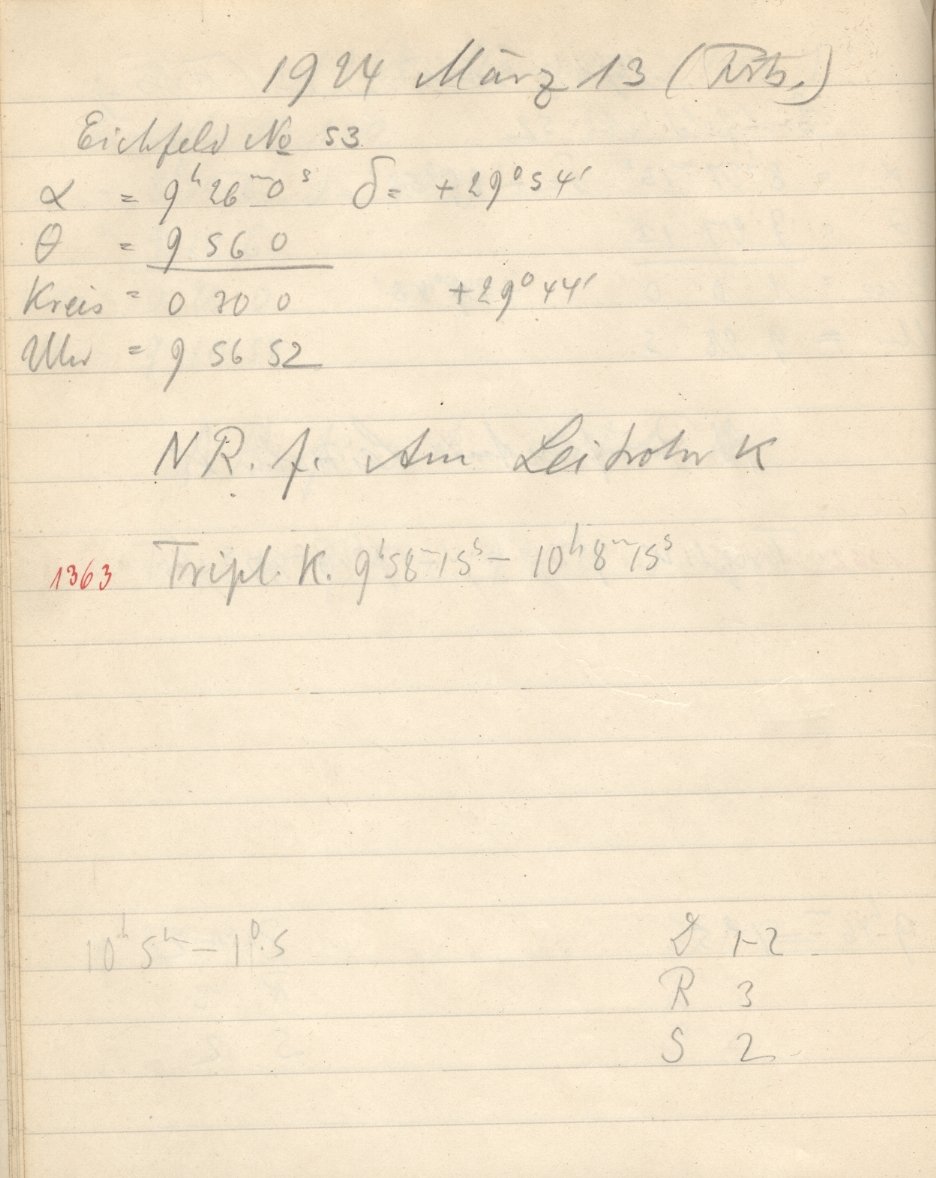 1924 März 13 (Forts.)
Eichfeld No 53
α = 9h 26m 0s δ = +29° 54'
θ = 9 56 0
Kreis = 0 30 0 +29° 44'
Uhr = 9 56 52
NR. f. Am Leitrohr K
1363 Tripl. K. 9h 58m 15s – 10h 8m 15s
10h 5m – 1°.5 D 1-2
R 3
S 2